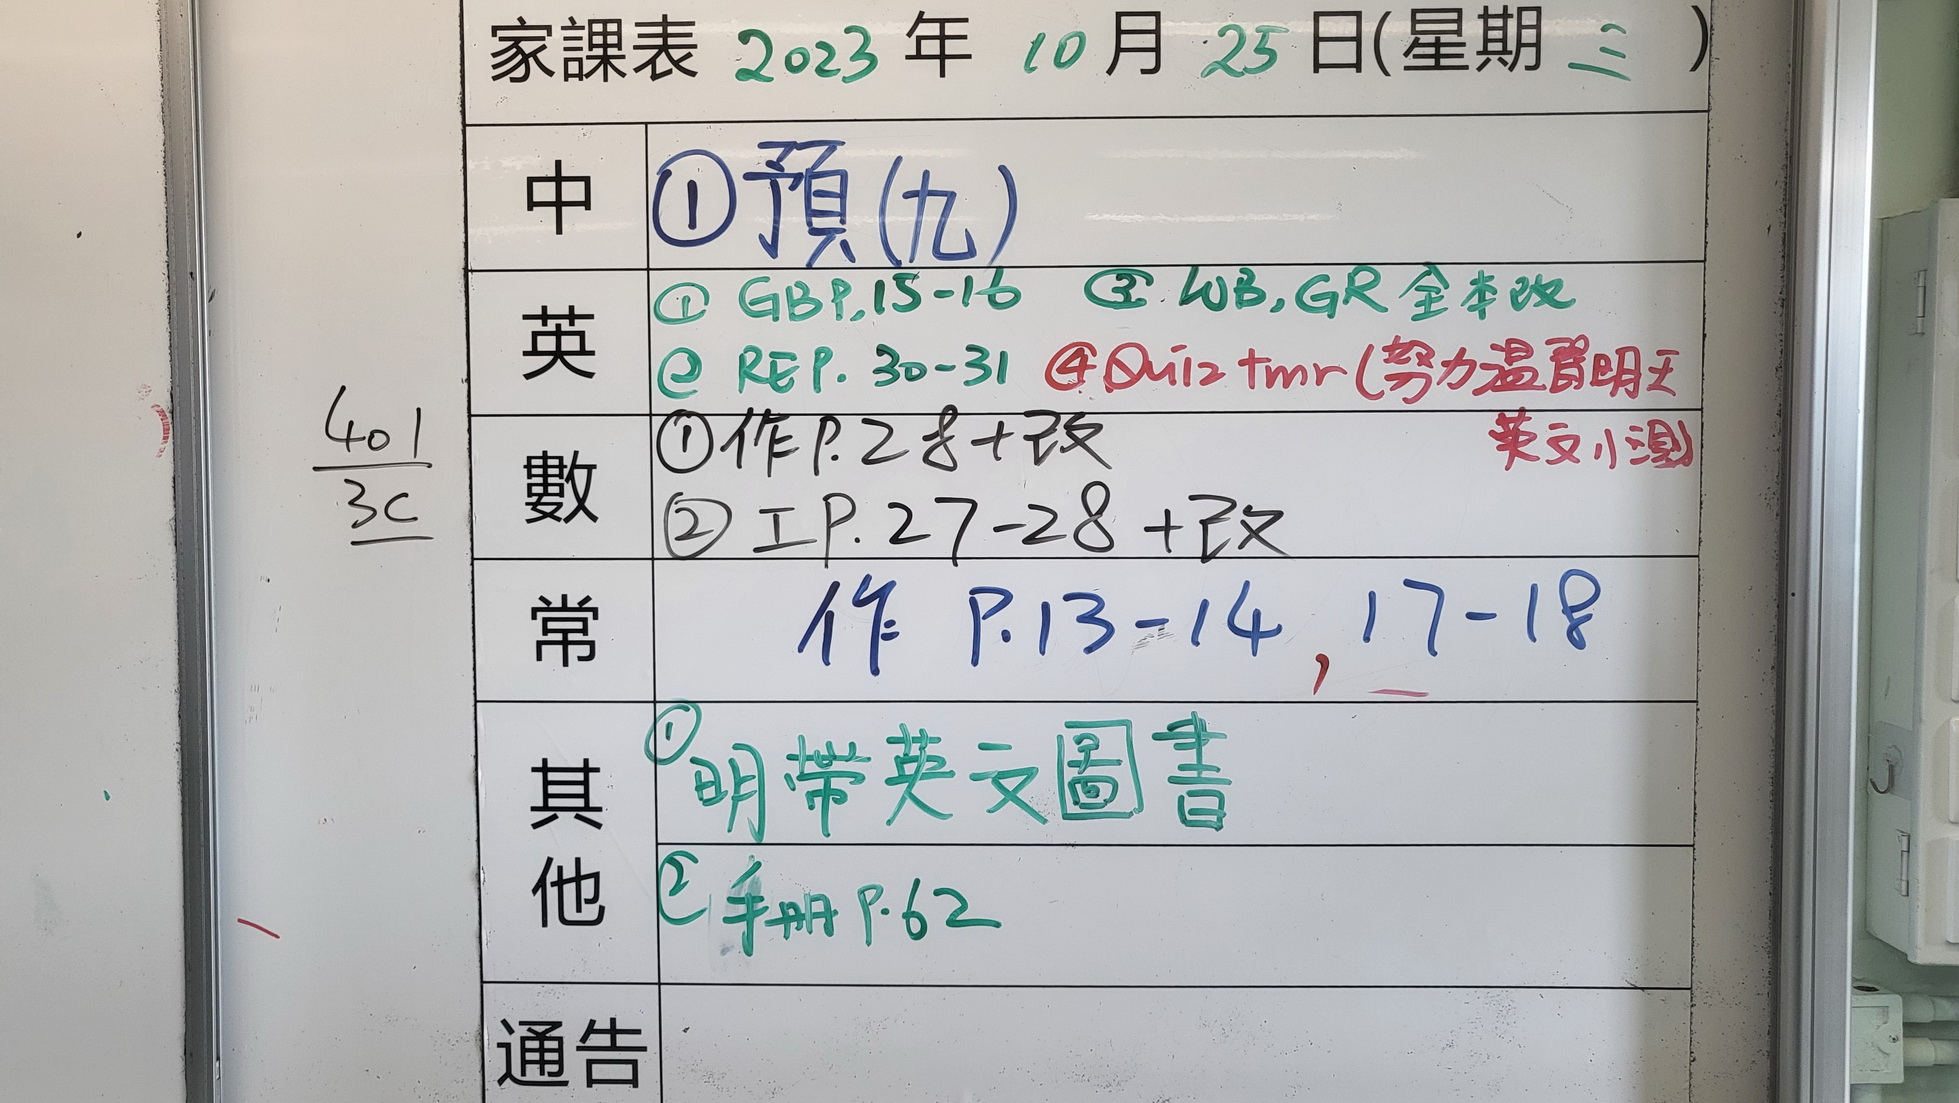 家課表 2023 年 10 月 25 日(星期 三 )
中 ①預(九)
英 ① GB P.15-16 ③ WB, GR 全本改
② RE P. 30-31 ④ Quiz tmr (努力温習明天
英文小測)
數 ①作P.28+改
② 工 P.27-28 +改
常 作 P.13-14, 17-18
401
3C
其他 ①明帶英文圖書
② 手冊 P.62
通告